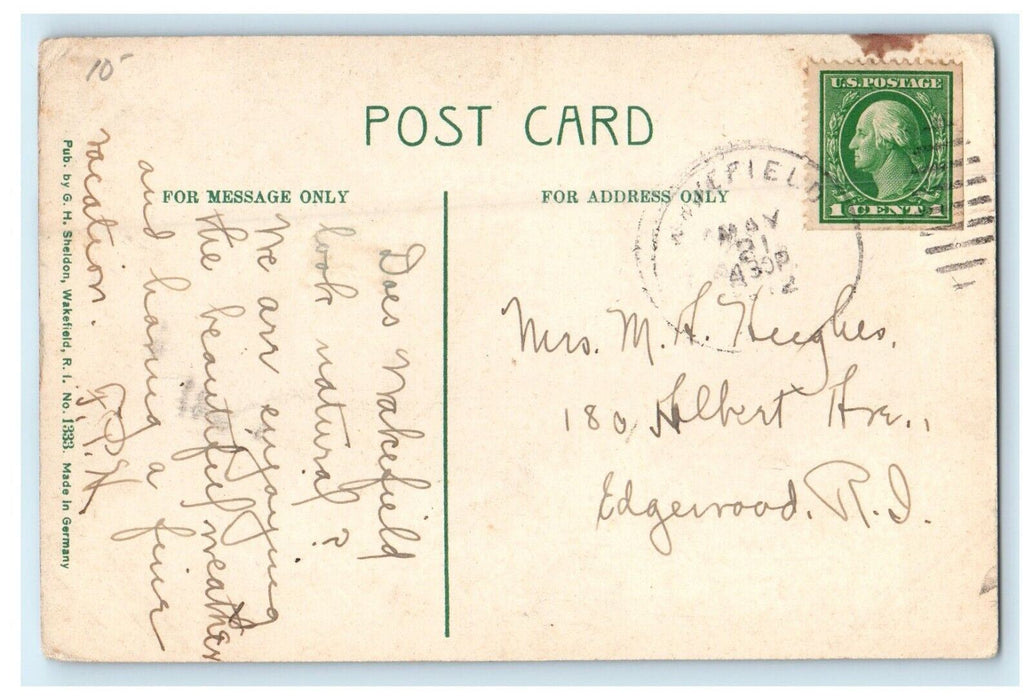 10
POST CARD
FOR MESSAGE ONLY
FOR ADDRESS ONLY
U.S. POSTAGE
1 CENT 1
WAKEFIELD
MAY
21
430P
Does Wakefield
look natural?
We are enjoying
the beautiful weather
and having a fine
vacation.
Mrs. M. A. Hughes.
180 Albert Ave.,
Edgewood, R.I.
Pub. by G. H. Sheldon, Wakefield, R. I. No. 1333. Made in Germany